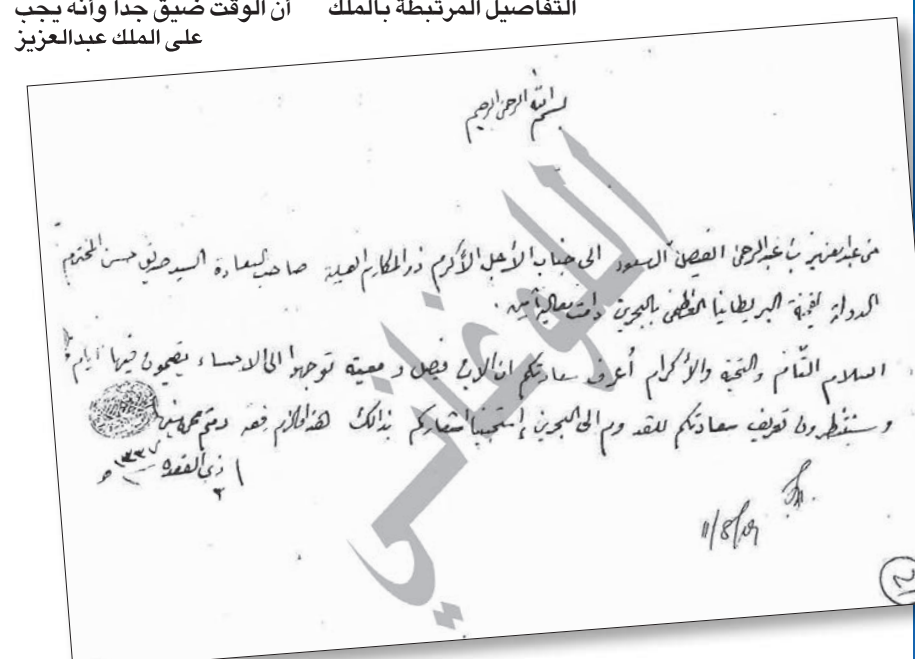 أن الوقت ضيق جداً وأنه يجب
على الملك عبدالعزيز
التفاصيل المرتبطة بالملك
بسم الله الرحمن الرحيم
من عبدالعزيز بن عبدالرحمن الفيصل آل سعود الى جناب الأجل الأكرم ذو المكارم العلية صاحب السعادة السيد صديق حسن المحترم
الدولة البريطانيا العظمى بالبحرين دامت معاليه آمين
السلام التام والتحية والأكرام أعرف سعادتكم ان الابن فيصل و معيته توجهوا الى الاحساء يقيمون فيها ايام
وسينتظرون تعريف سعادتكم للقدوم الى البحرين إستحبينا اشعاركم بذالك هذا مالزم رفعه ودمتم محروسين
٢ ذي القعدة ١٣٣٧ هـ
11/8/19
اللوغاني